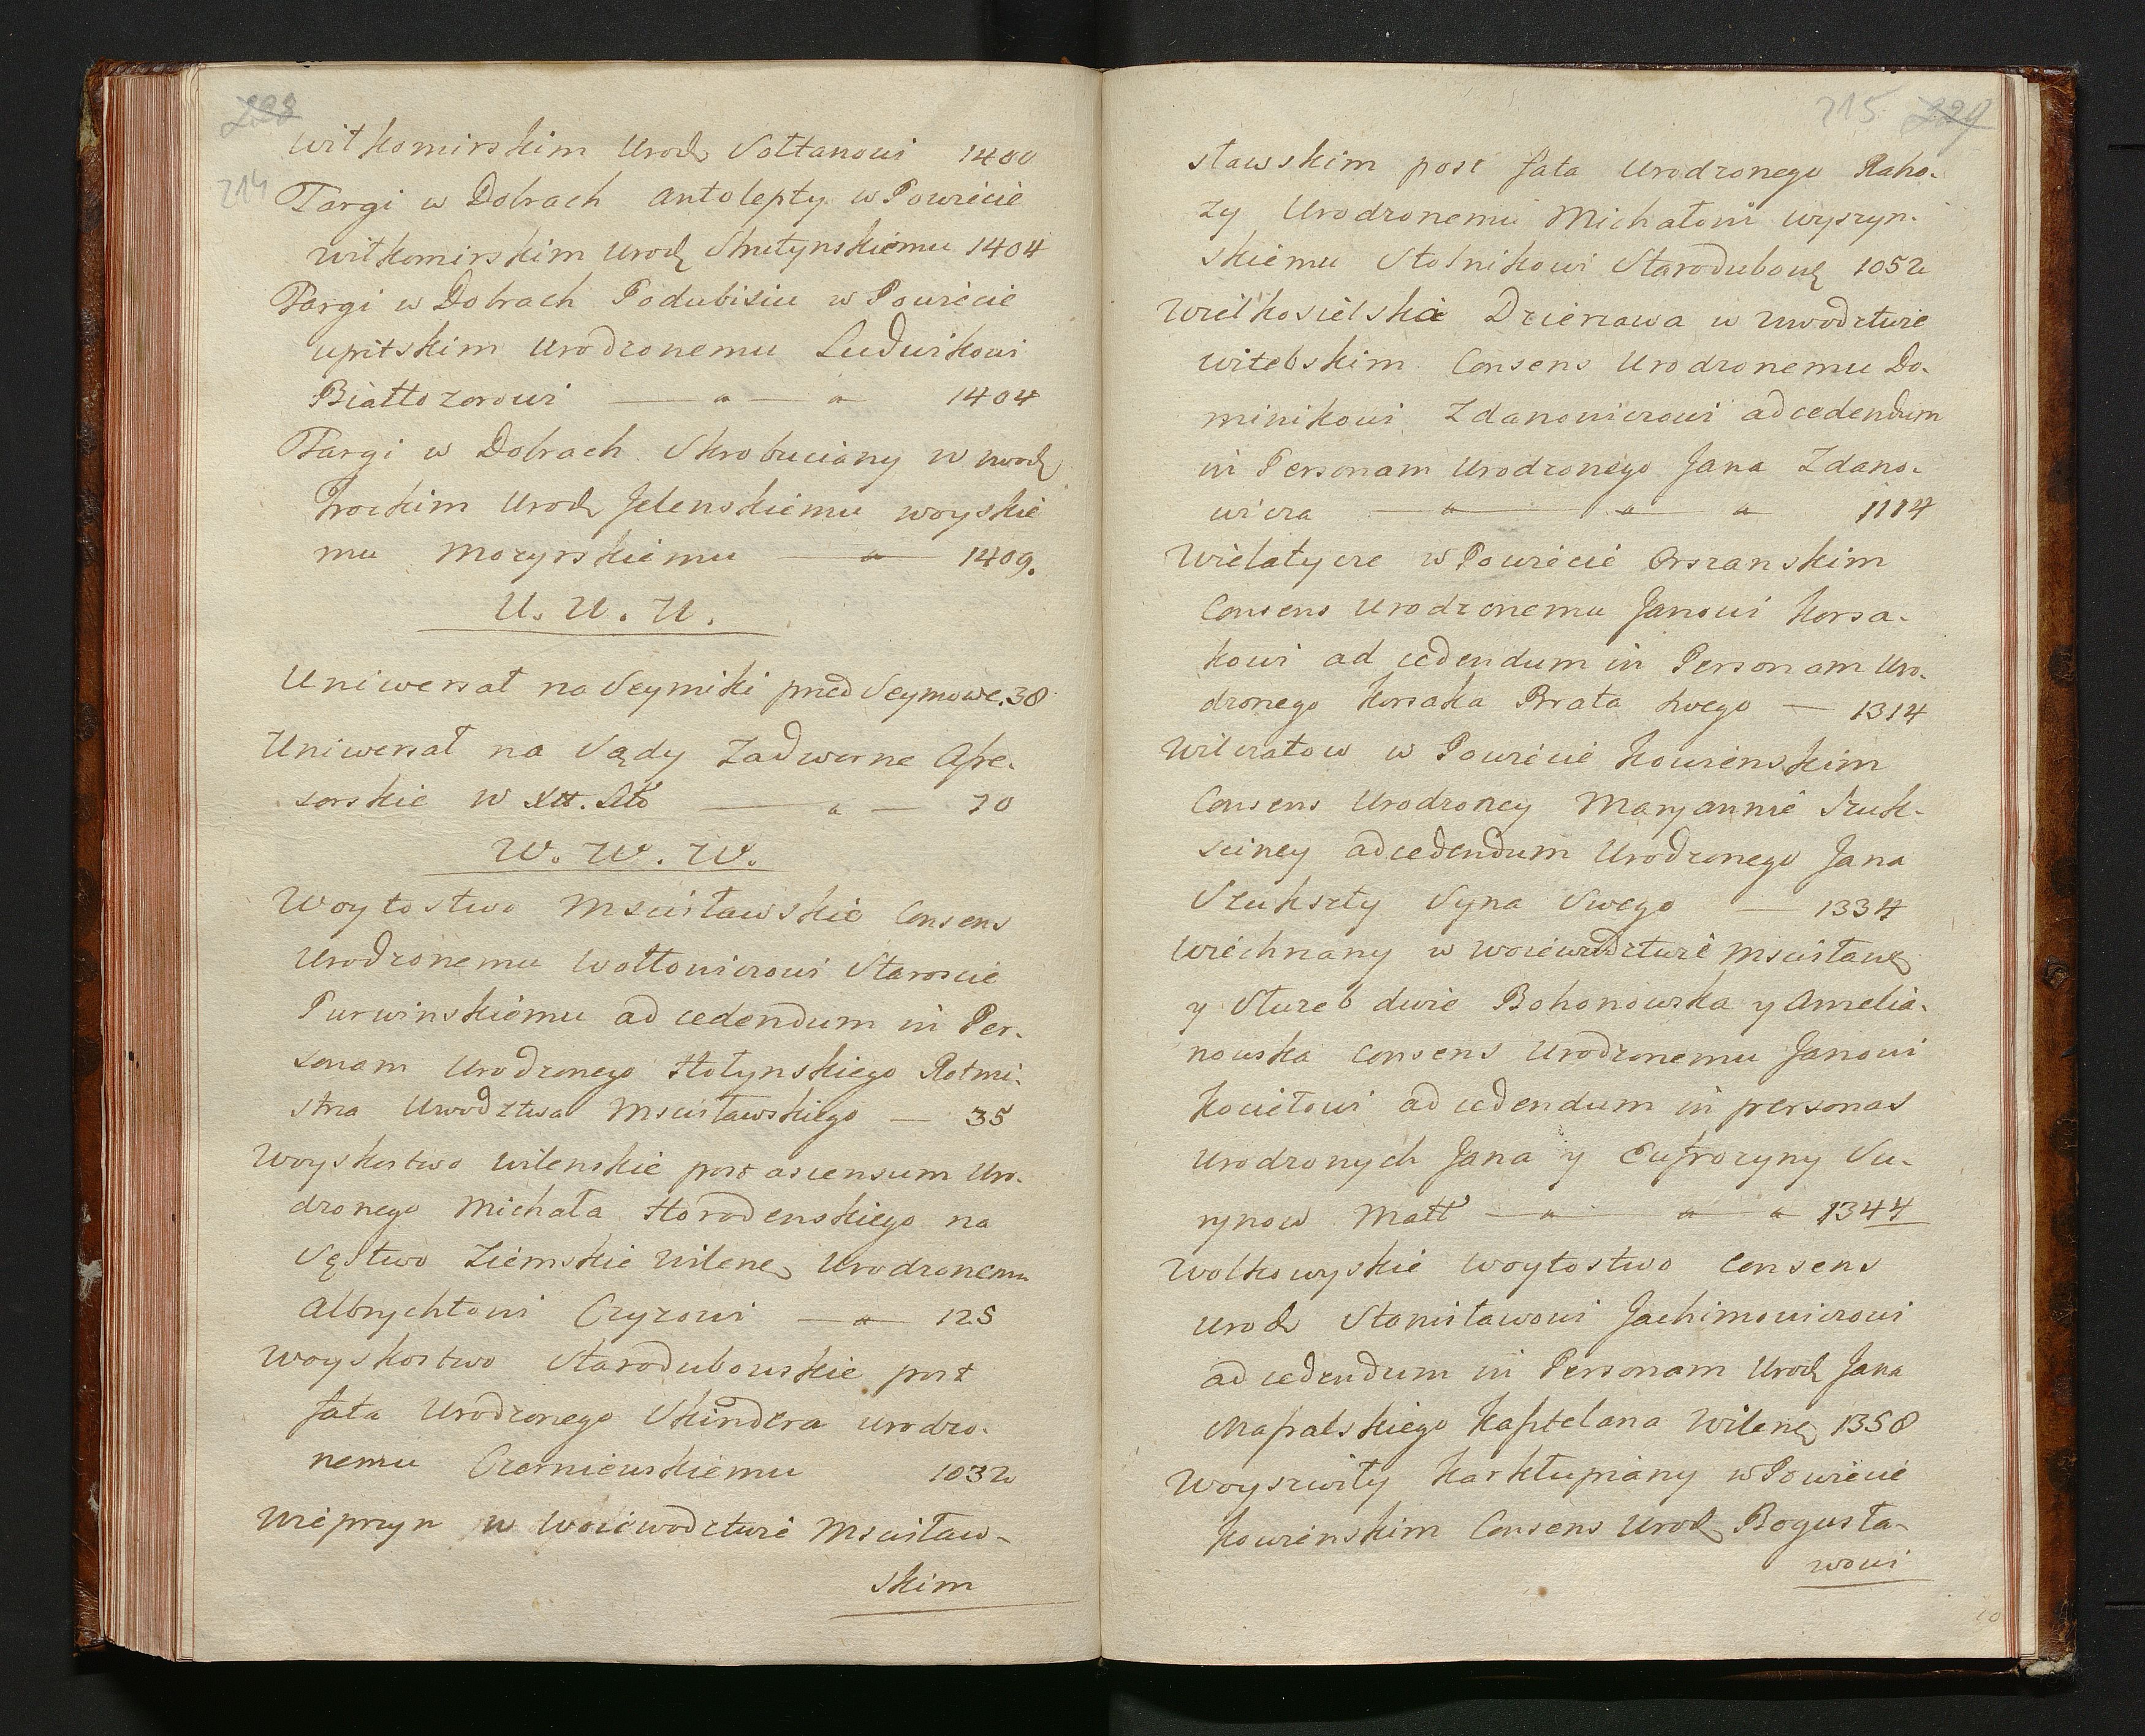 228
214
Wiłkomirskim Urodz Sołtanowi 1400
Targi w Dobrach Antolepty w Powiecie
Wiłkomirskim Urodz Strutynskiemu 1404
Targi w Dobrach Podubisiu w Powiecie
Upitskim Urodzonemu Ludwikowi
Białłozorowi — " — " 1404
Targi w Dobrach Skrobuciany w Uwodz
Trockim Urodz Jelenskiemu Woyskie
mu Mozyrskiemu — " — 1409.
U. U. U.
Uniwersał na Seymiki przed Seymowe. 38
Uniwersał na Sądy Zadworne Asse-
sorskie w Litt — " — 70
W. W. W.
Woytostwo Mscisławskie Consens
Urodzonemu Wołłowiczowi Staroscie
Purwinskiemu ad cedendum in Per-
sonam Urodzonego Hołynskiego Rotmi-
strza Uwodztwa Mscisławskiego — 35
Woyskostwo Wilenskie post ascensum Uro-
dzonego Michała Horodenskiego na
Sęstwo Ziemskie Wilene Urodzonemu
Albrychtowi Czyzowi — " — 125
Woyskostwo Starodubowskie post
fata Urodzonego Skindera Urodzo-
nemu Czerniewskiemu 1032
Wieprzyn w Woiewodztwie Mscisław-
skim
215 229
sławskim post fata Urodzonego Raho-
zy Urodzonemu Michałowi Wyszyn-
skiemu Stolnikowi Starodubow 1052
Wielkosielska Dzierzawa w Uwodztwie
Witebskim Consens Urodzonemu Do-
minikowi Zdanowiczowi ad cedendum
in Personam Urodzonego Jana Zdano-
wicza — " — " — " 1114
Wielatycze w Powiecie Orszanskim
Consens Urodzonemu Janowi Korsa-
kowi ad cedendum in Personam Uro-
dzonego Korsaka Brata swego — 1314
Wilczatow w Powiecie Kowienskim
Consens Urodzoney Maryannie Szuk-
sciney ad cedendum Urodzonego Jana
Szukszty Syna Swego — 1334
Wiechrzany w Woiewodztwie Mscisław
y Słureb dwie Bohonowska y Amelia-
nowska Consens Urodzonemu Janowi
Kociełowi ad cedendum in personas
Urodzonych Jana y Eufrozyny Su-
rynow Małż — " — " — " 1344
Wolkowyskie Woytostwo Consens
Urodz Stanisławowi Jachimowiczowi
ad cedendum in Personam Urodz Jana
Kasztelana Wilene 1358
Woyszwiły Karkłupiany w Powiecie
Kowienskim Consens Urodz Bogusła-
wowi